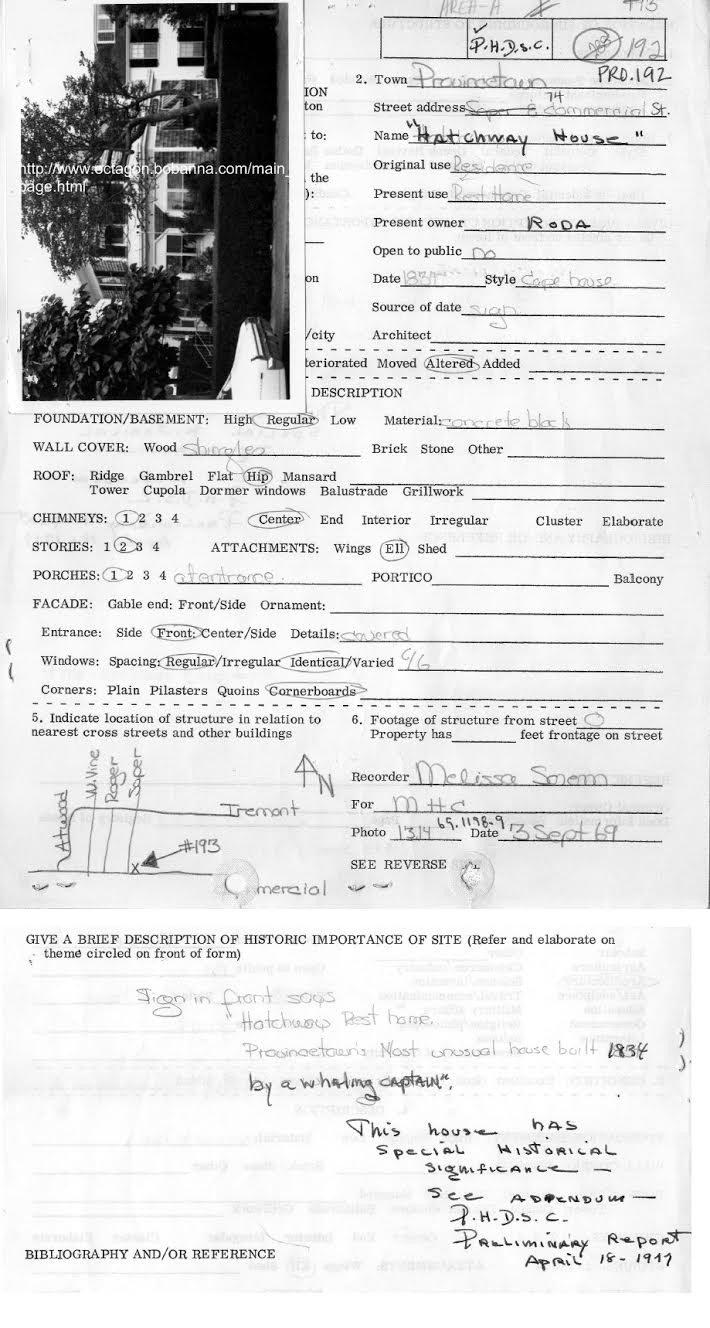 AREA-A
P.H.D.S.C. 192
PRO.192
ION
2. Town Provincetown
ton
Street address Soper & 74 Commercial St.
to:
Name "Hatchway House"
http://www.octagon.bobanna.com/main_page.html
Original use Residence
the
):
Present use Rest Home
Present owner RODA
Open to public no
on
Date Style Cape house
Source of date sign
/city Architect
teriorated Moved Altered Added
DESCRIPTION
FOUNDATION/BASEMENT: High Regular Low Material: concrete block
WALL COVER: Wood Shingles Brick Stone Other
ROOF: Ridge Gambrel Flat Hip Mansard
Tower Cupola Dormer windows Balustrade Grillwork
CHIMNEYS: 1 2 3 4 Center End Interior Irregular Cluster Elaborate
STORIES: 1 2 3 4 ATTACHMENTS: Wings Ell Shed
PORCHES: 1 2 3 4 at entrance. PORTICO Balcony
FACADE: Gable end: Front/Side Ornament:
Entrance: Side Front: Center/Side Details: covered
Windows: Spacing: Regular/Irregular Identical/Varied 6/6
Corners: Plain Pilasters Quoins Cornerboards
5. Indicate location of structure in relation to
nearest cross streets and other buildings
6. Footage of structure from street 0
Property has feet frontage on street
Atwood
W.Vine
Roger
Soper
N
Tremont
#193
X
mercial
Recorder Melissa
For MHC
Photo 1314 69.1198-9 Date 3 Sept 69
SEE REVERSE
GIVE A BRIEF DESCRIPTION OF HISTORIC IMPORTANCE OF SITE (Refer and elaborate on
theme circled on front of form)
Sign in front says
"Hatchway Rest home
Provincetown's Most unusual house built 1834
by a whaling CAPTAIN".
This house has
special historical
significance —
See addendum —
P.H.D.S.C.
Preliminary Report
April 18-1977
BIBLIOGRAPHY AND/OR REFERENCE